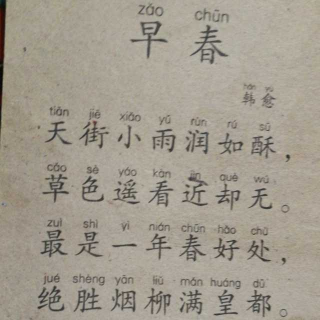 zǎo chūn
早春
hán yù
韩愈
tiān jiē xiǎo yǔ rùn rú sū
天街小雨润如酥，
cǎo sè yáo kàn jìn què wú
草色遥看近却无。
zuì shì yì nián chūn hǎo chù
最是一年春好处，
jué shèng yān liǔ mǎn huáng dū
绝胜烟柳满皇都。